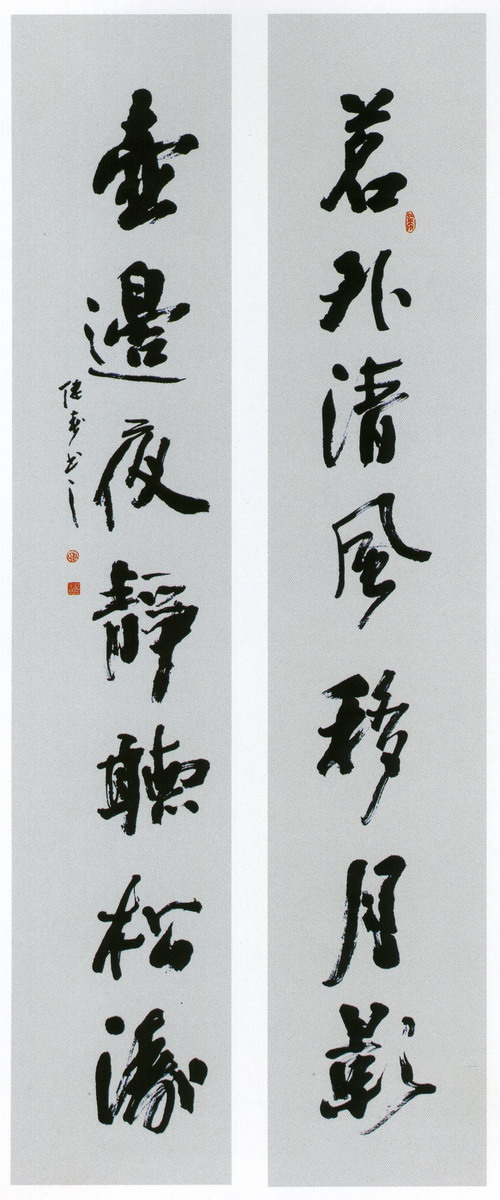 茗外清風移月影
壺邊夜靜聽松濤